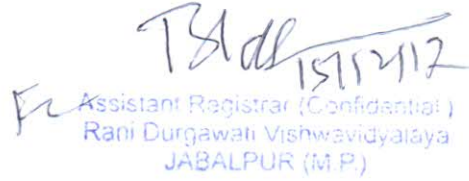 15/12/12
Assistant Registrar (Confidential)
Rani Durgawati Vishwavidyalaya
JABALPUR (M.P.)